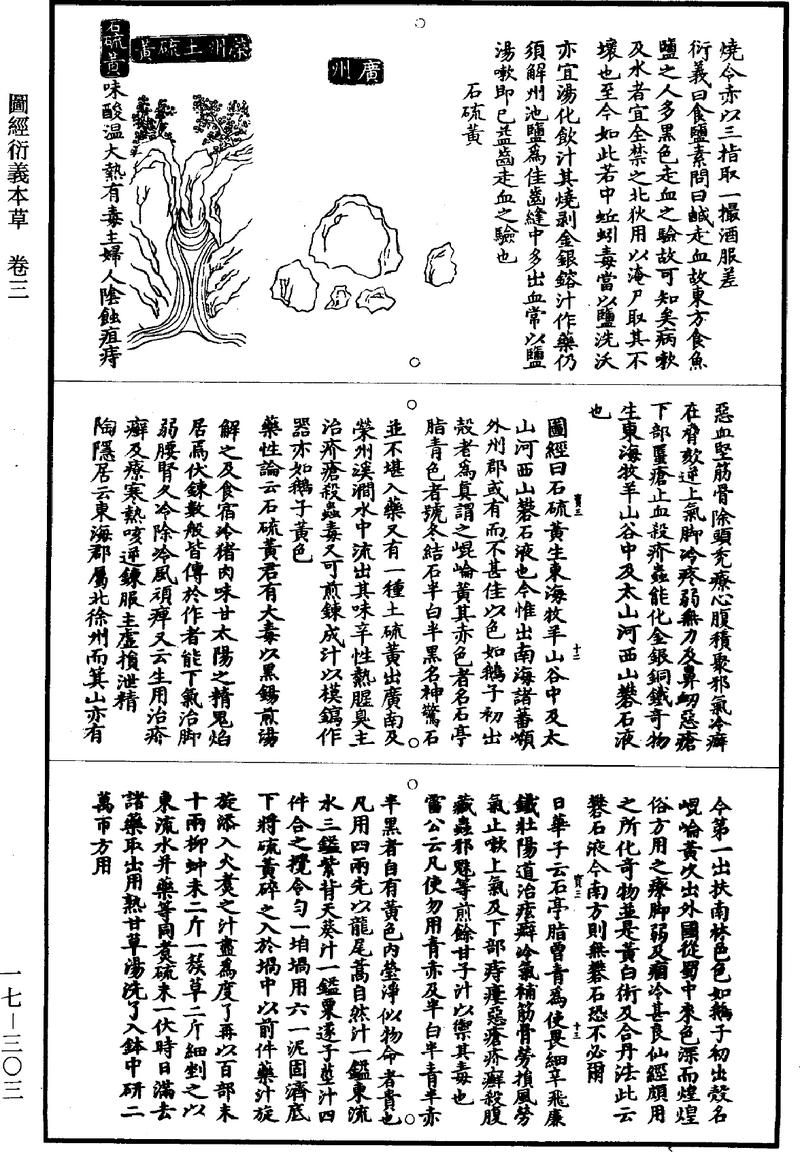 圖經衍義本草　卷三
燒令赤以三指取一撮酒服差
衍義曰食鹽素問曰鹹走血故東方食魚
鹽之人多黑色走血之驗故可知矣病嗽
及水者宜全禁之北狄用以淹尸取其不
壞也至今如此若中蚯蚓毒當以鹽洗沃
亦宜湯化飲汁其燒剥金銀鎔汁作藥仍
須解州池鹽爲佳齒縫中多出血常以鹽
湯嗽即已益齒走血之驗也
石硫黃
廣州
榮州土硫黃
石硫黃
味酸温大熱有毒主婦人陰蝕疽痔
惡血堅筋骨除頭秃療心腹積聚邪氣冷癖
在脅欬逆上氣脚冷疼弱無力及鼻衂惡瘡
下部䘌瘡止血殺疥蟲能化金銀銅鐵奇物
生東海牧羊山谷中及太山河西山礬石液
也
寶三
十二
圖經曰石硫黃生東海牧羊山谷中及太
山河西山礬石液也今惟出南海諸蕃嶺
外州郡或有而不甚佳以色如鵝子初出
殻者爲真謂之崐崘黃其赤色者名石亭
脂青色者號冬結石半白半黑名神驚石
並不堪入藥又有一種土硫黃出廣南及
榮州溪澗水中流出其味辛性熱腥臭主
治疥瘡殺蟲毒又可煎鍊成汁以模鎬作
器亦如鵝子黃色
藥性論云石硫黃君有大毒以黑錫煎湯
解之及食宿冷猪肉味甘太陽之精鬼焰
居焉伏鍊數般皆傳於作者能下氣治脚
弱腰腎久冷除冷風頑痺又云生用治疥
癬及療寒熱咳逆鍊服主虛損泄精
陶隱居云東海郡屬北徐州而箕山亦有
今第一出扶南林邑色如鵝子初出殻名
崐崘黃次出外國從蜀中來色深而煌煌
俗方用之療脚弱及痼冷甚良仙經頗用
之所化奇物並是黃白術及合丹法此云
礬石液今南方則無礬石恐不必爾
寶三
十三
日華子云石亭脂曾青為使畏細辛飛廉
鐵壯陽道治痃癖冷氣補筋骨勞損風勞
氣止嗽上氣及下部痔瘻惡瘡疥癬殺腹
藏蟲邪魅等煎餘甘子汁以禦其毒也
雷公云凡使勿用青赤及半白半青半赤
半黑者自有黃色内瑩淨似物命者貴也
凡用四兩先以龍尾蒿自然汁一鎰東流
水三鎰紫背天葵汁一鎰粟遂子莖汁四
件合之攪令匀一坩堝用六一泥固濟底
下將硫黃碎之入於堝中以前件藥汁旋
旋添入火煑之汁盡爲度了再以百部末
十兩柳蚛末二斤一簇草二斤細剉之以
東流水并藥等同煑硫末一伏時日滿去
諸藥取出用熟甘草湯洗了入鉢中研二
萬帀方用
一七—三〇三